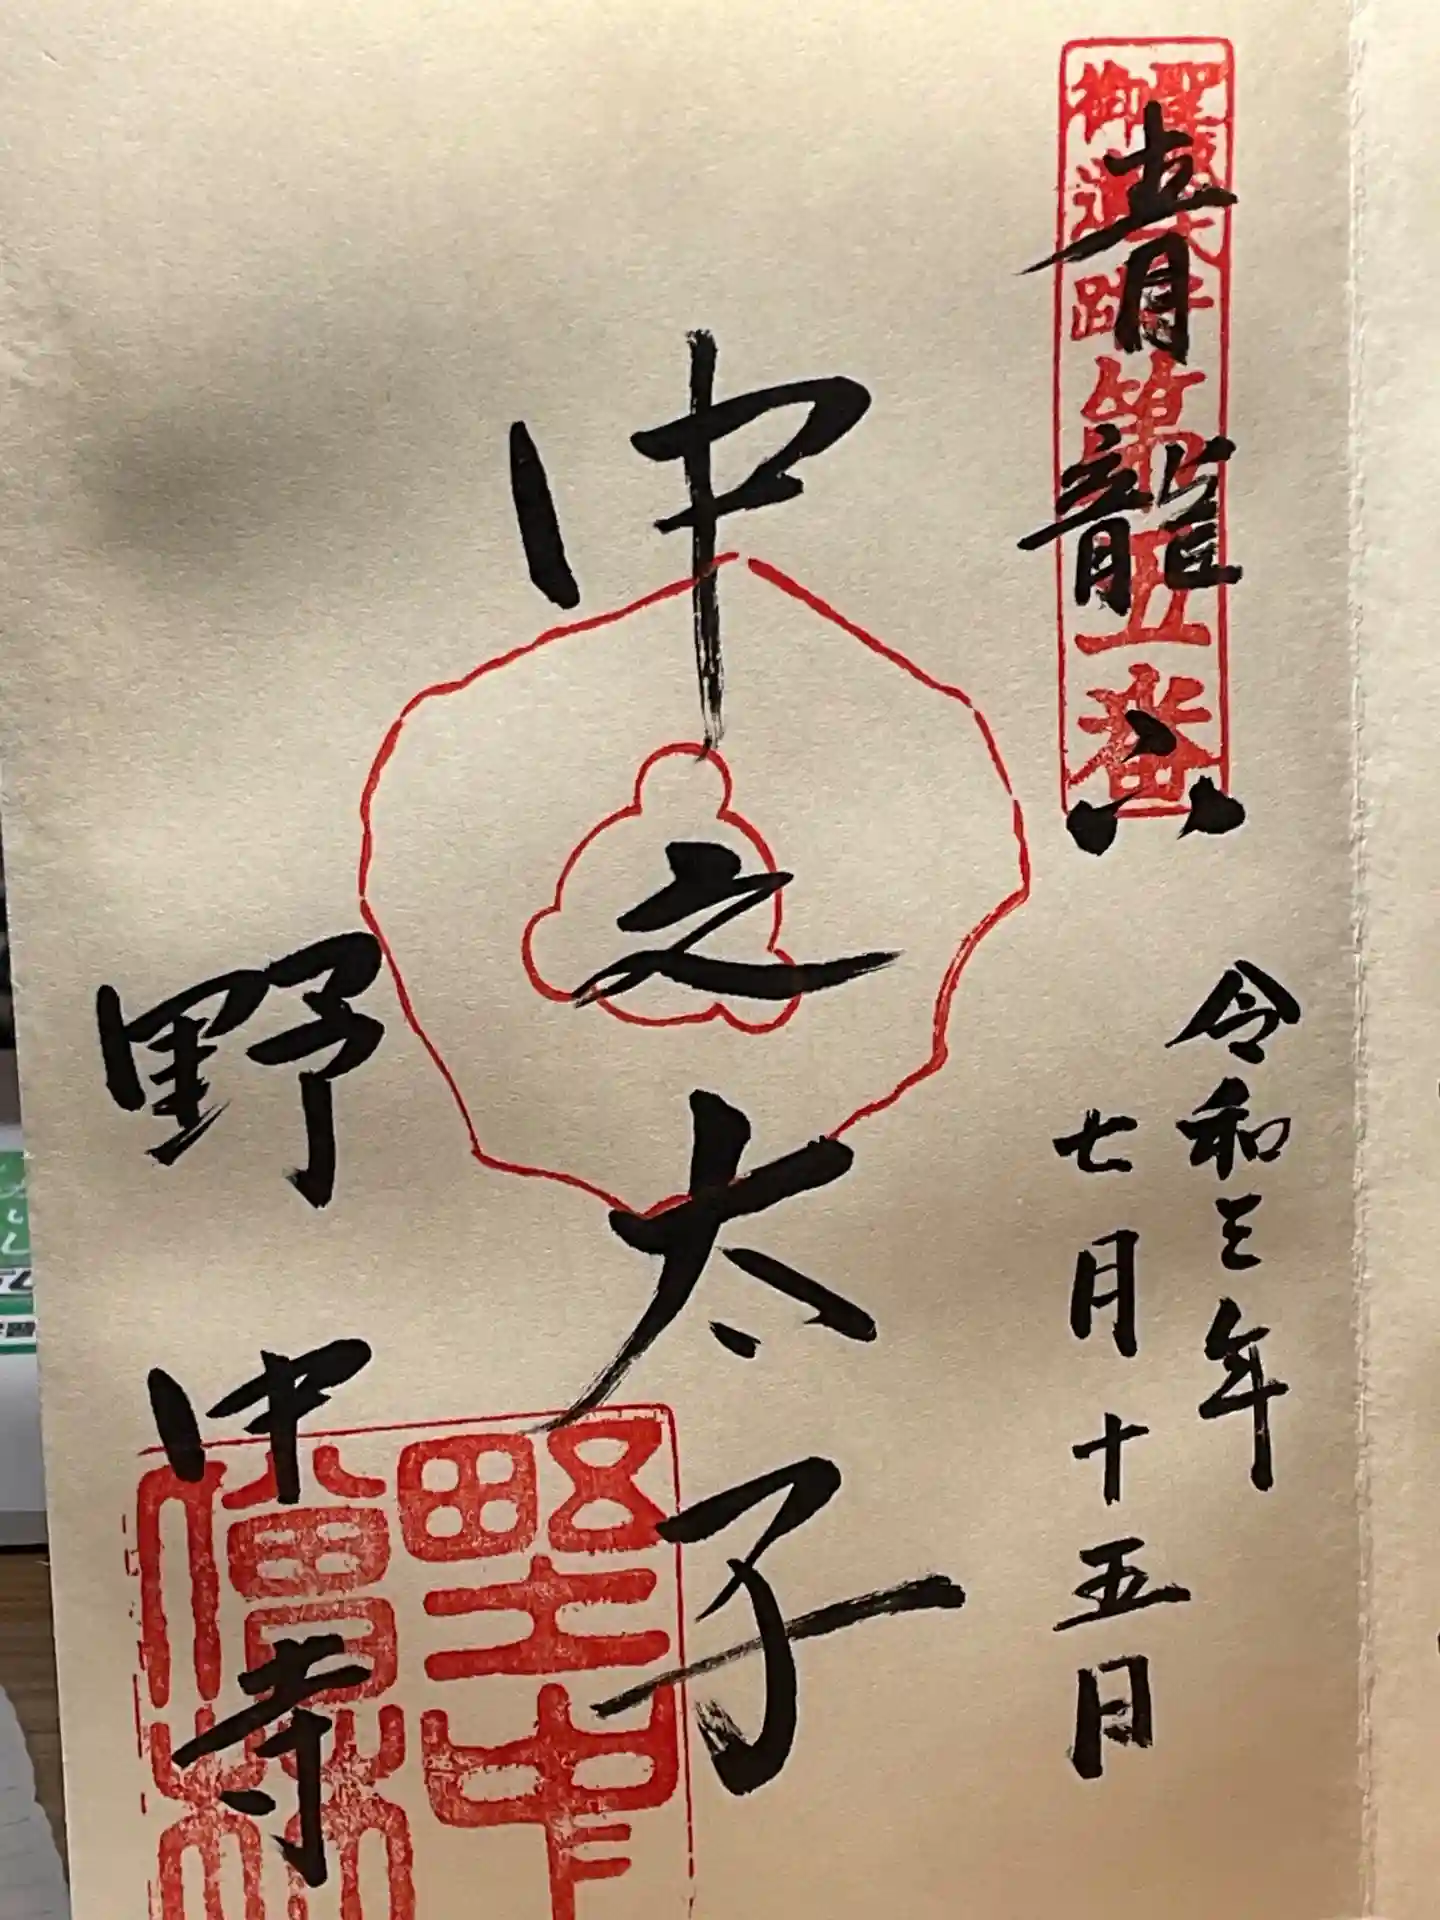 聖徳太子
御遺跡
第五番
青龍山
令和三年
七月十五日
中之太子
野中寺
野中
僧林